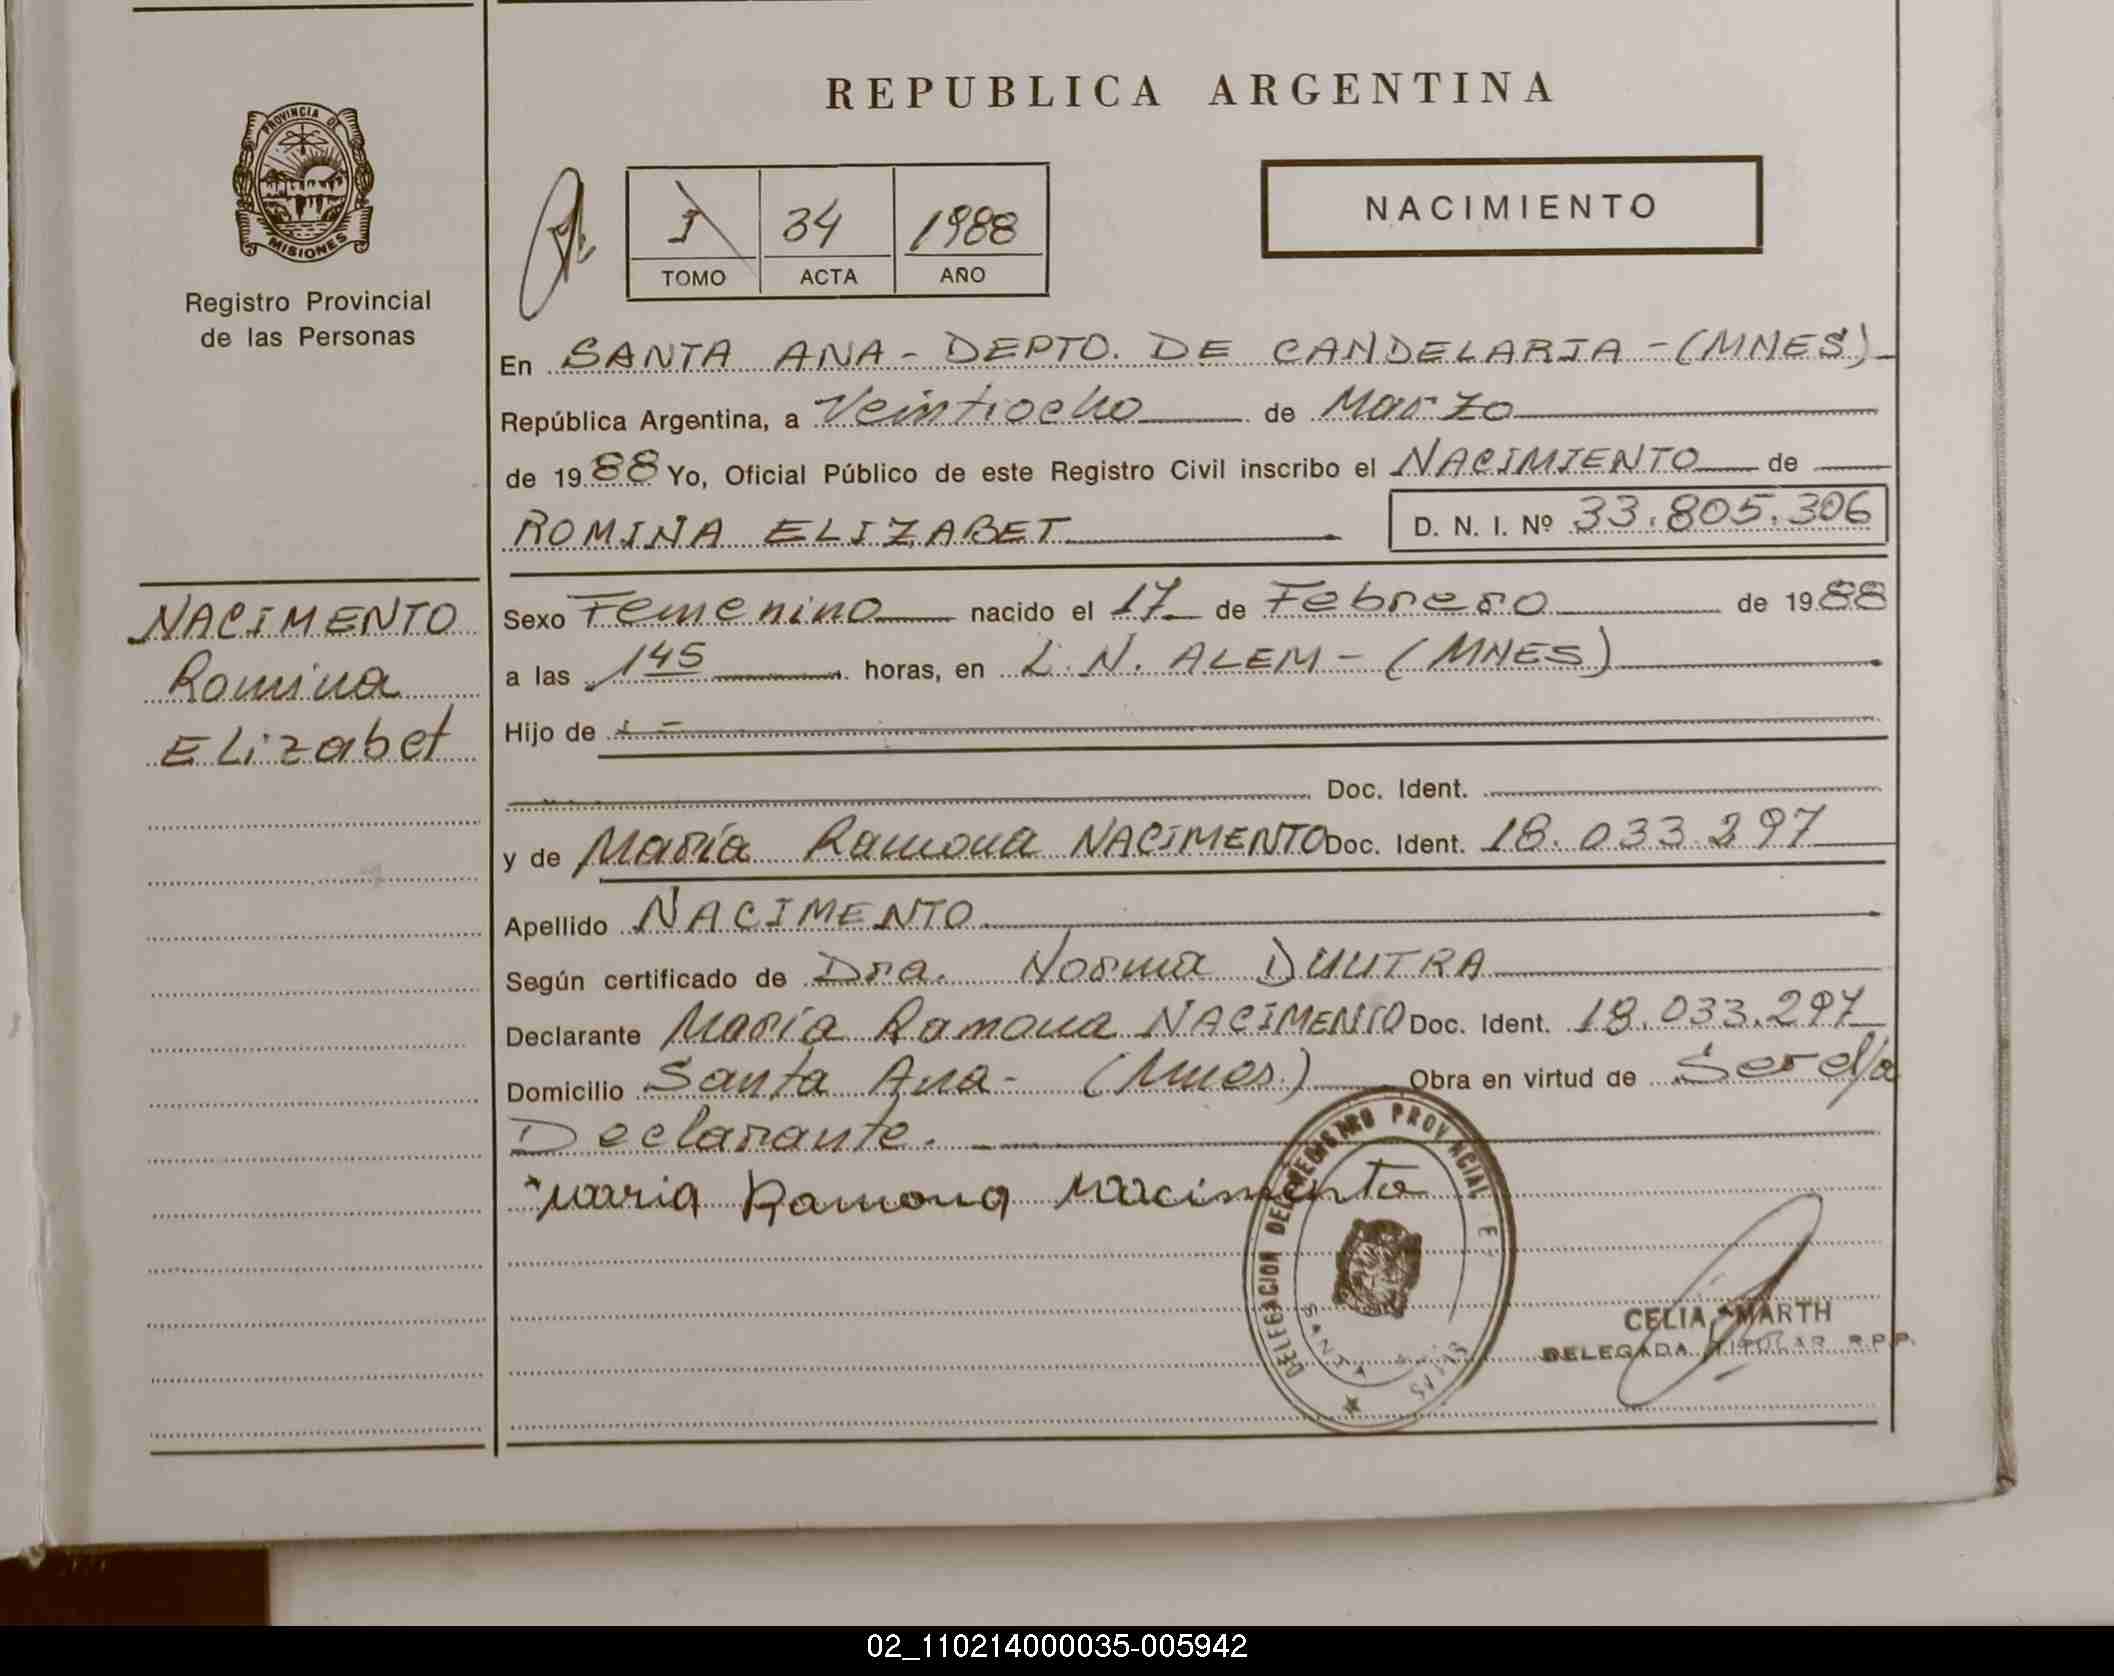 REPUBLICA ARGENTINA
PROVINCIA DE
MISIONES
Registro Provincial
de las Personas
I 34 1988
TOMO ACTA AÑO
NACIMIENTO
En SANTA ANA - DEPTO. DE CANDELARIA - (MNES)
República Argentina, a Veintiocho de Marzo
de 1988 Yo, Oficial Público de este Registro Civil inscribo el NACIMIENTO de
ROMINA ELIZABET D. N. I. Nº 33.805.306
NACIMENTO
Romina
Elizabet
Sexo Femenino nacido el 17 de Febrero de 1988
a las 145 horas, en L. N. ALEM - (MNES)
Hijo de
Doc. Ident.
y de María Ramona NACIMENTO Doc. Ident. 18.033.297
Apellido NACIMENTO
Según certificado de Dra. Norma DUUTRA
Declarante María Ramona NACIMENTO Doc. Ident. 18.033.297
Domicilio Santa Ana - (Mnes.) Obra en virtud de Ser el/a
Declarante.
Maria Ramona Nacimento
DELEGACION DEL REGISTRO PROVINCIAL
SANTA
CELIA MARTH
DELEGADA TITULAR R.P.P.
02_110214000035-005942